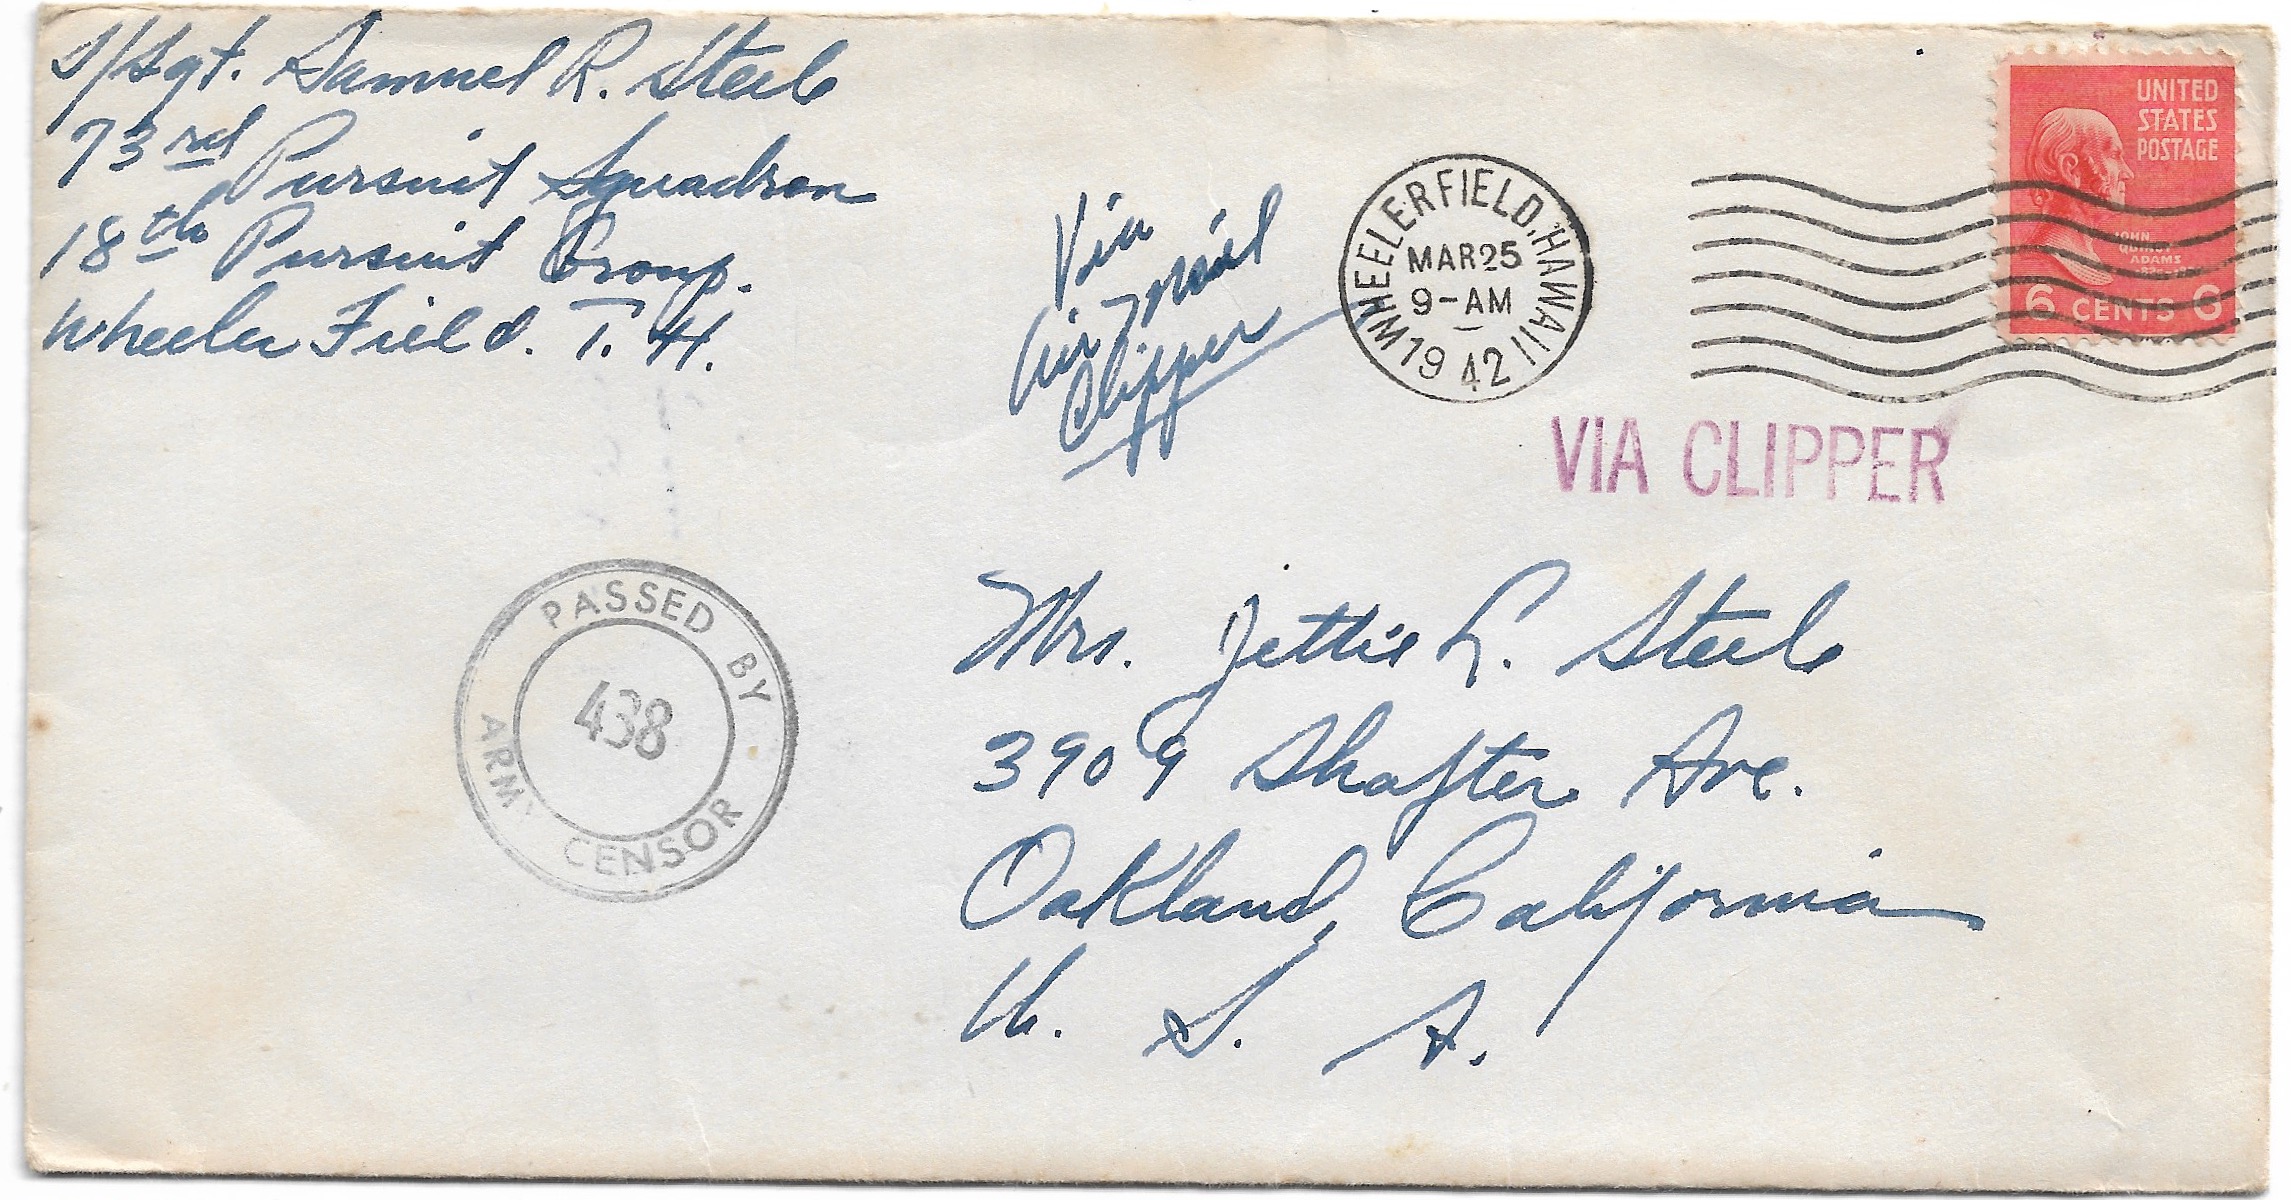 S/Sgt. Samuel R. Steele
73rd Pursuit Squadron
18th Pursuit Group.
Wheeler Field. T. H.
Via
Air Mail
Clipper
WHEELER FIELD, HAWAII
MAR 25
9-AM
1942
UNITED
STATES
POSTAGE
JOHN
QUINCY
ADAMS
6 CENTS 6
VIA CLIPPER
PASSED BY
438
ARMY CENSOR
Mrs. Jettie L. Steele
3909 Shafter Ave.
Oakland, California
U. S. A.